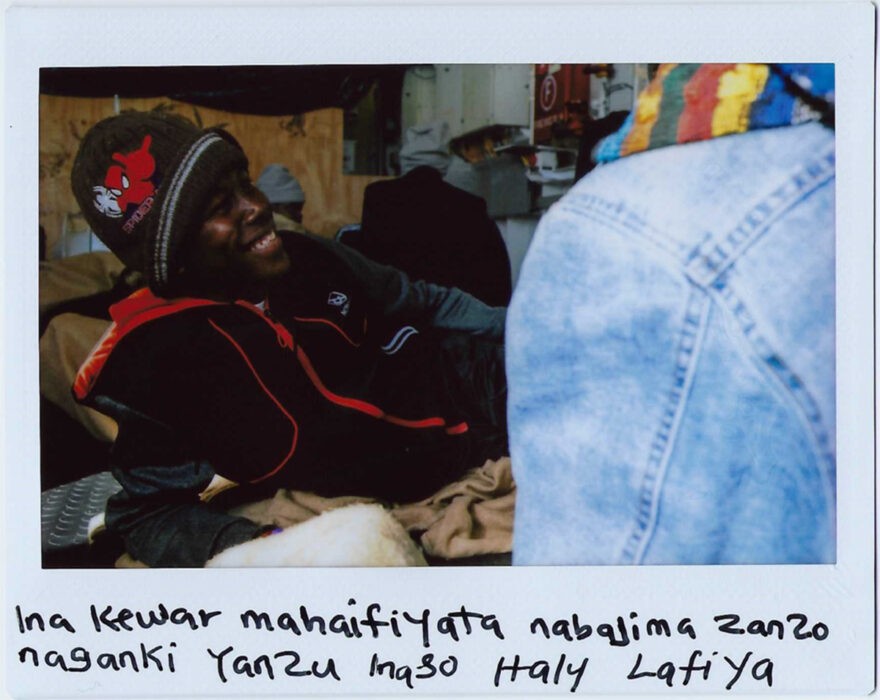 SPIDER
Ina Kewar mahaifiyata nabaJima zanzo
naganki Yanzu Inaso Haly Lafiya